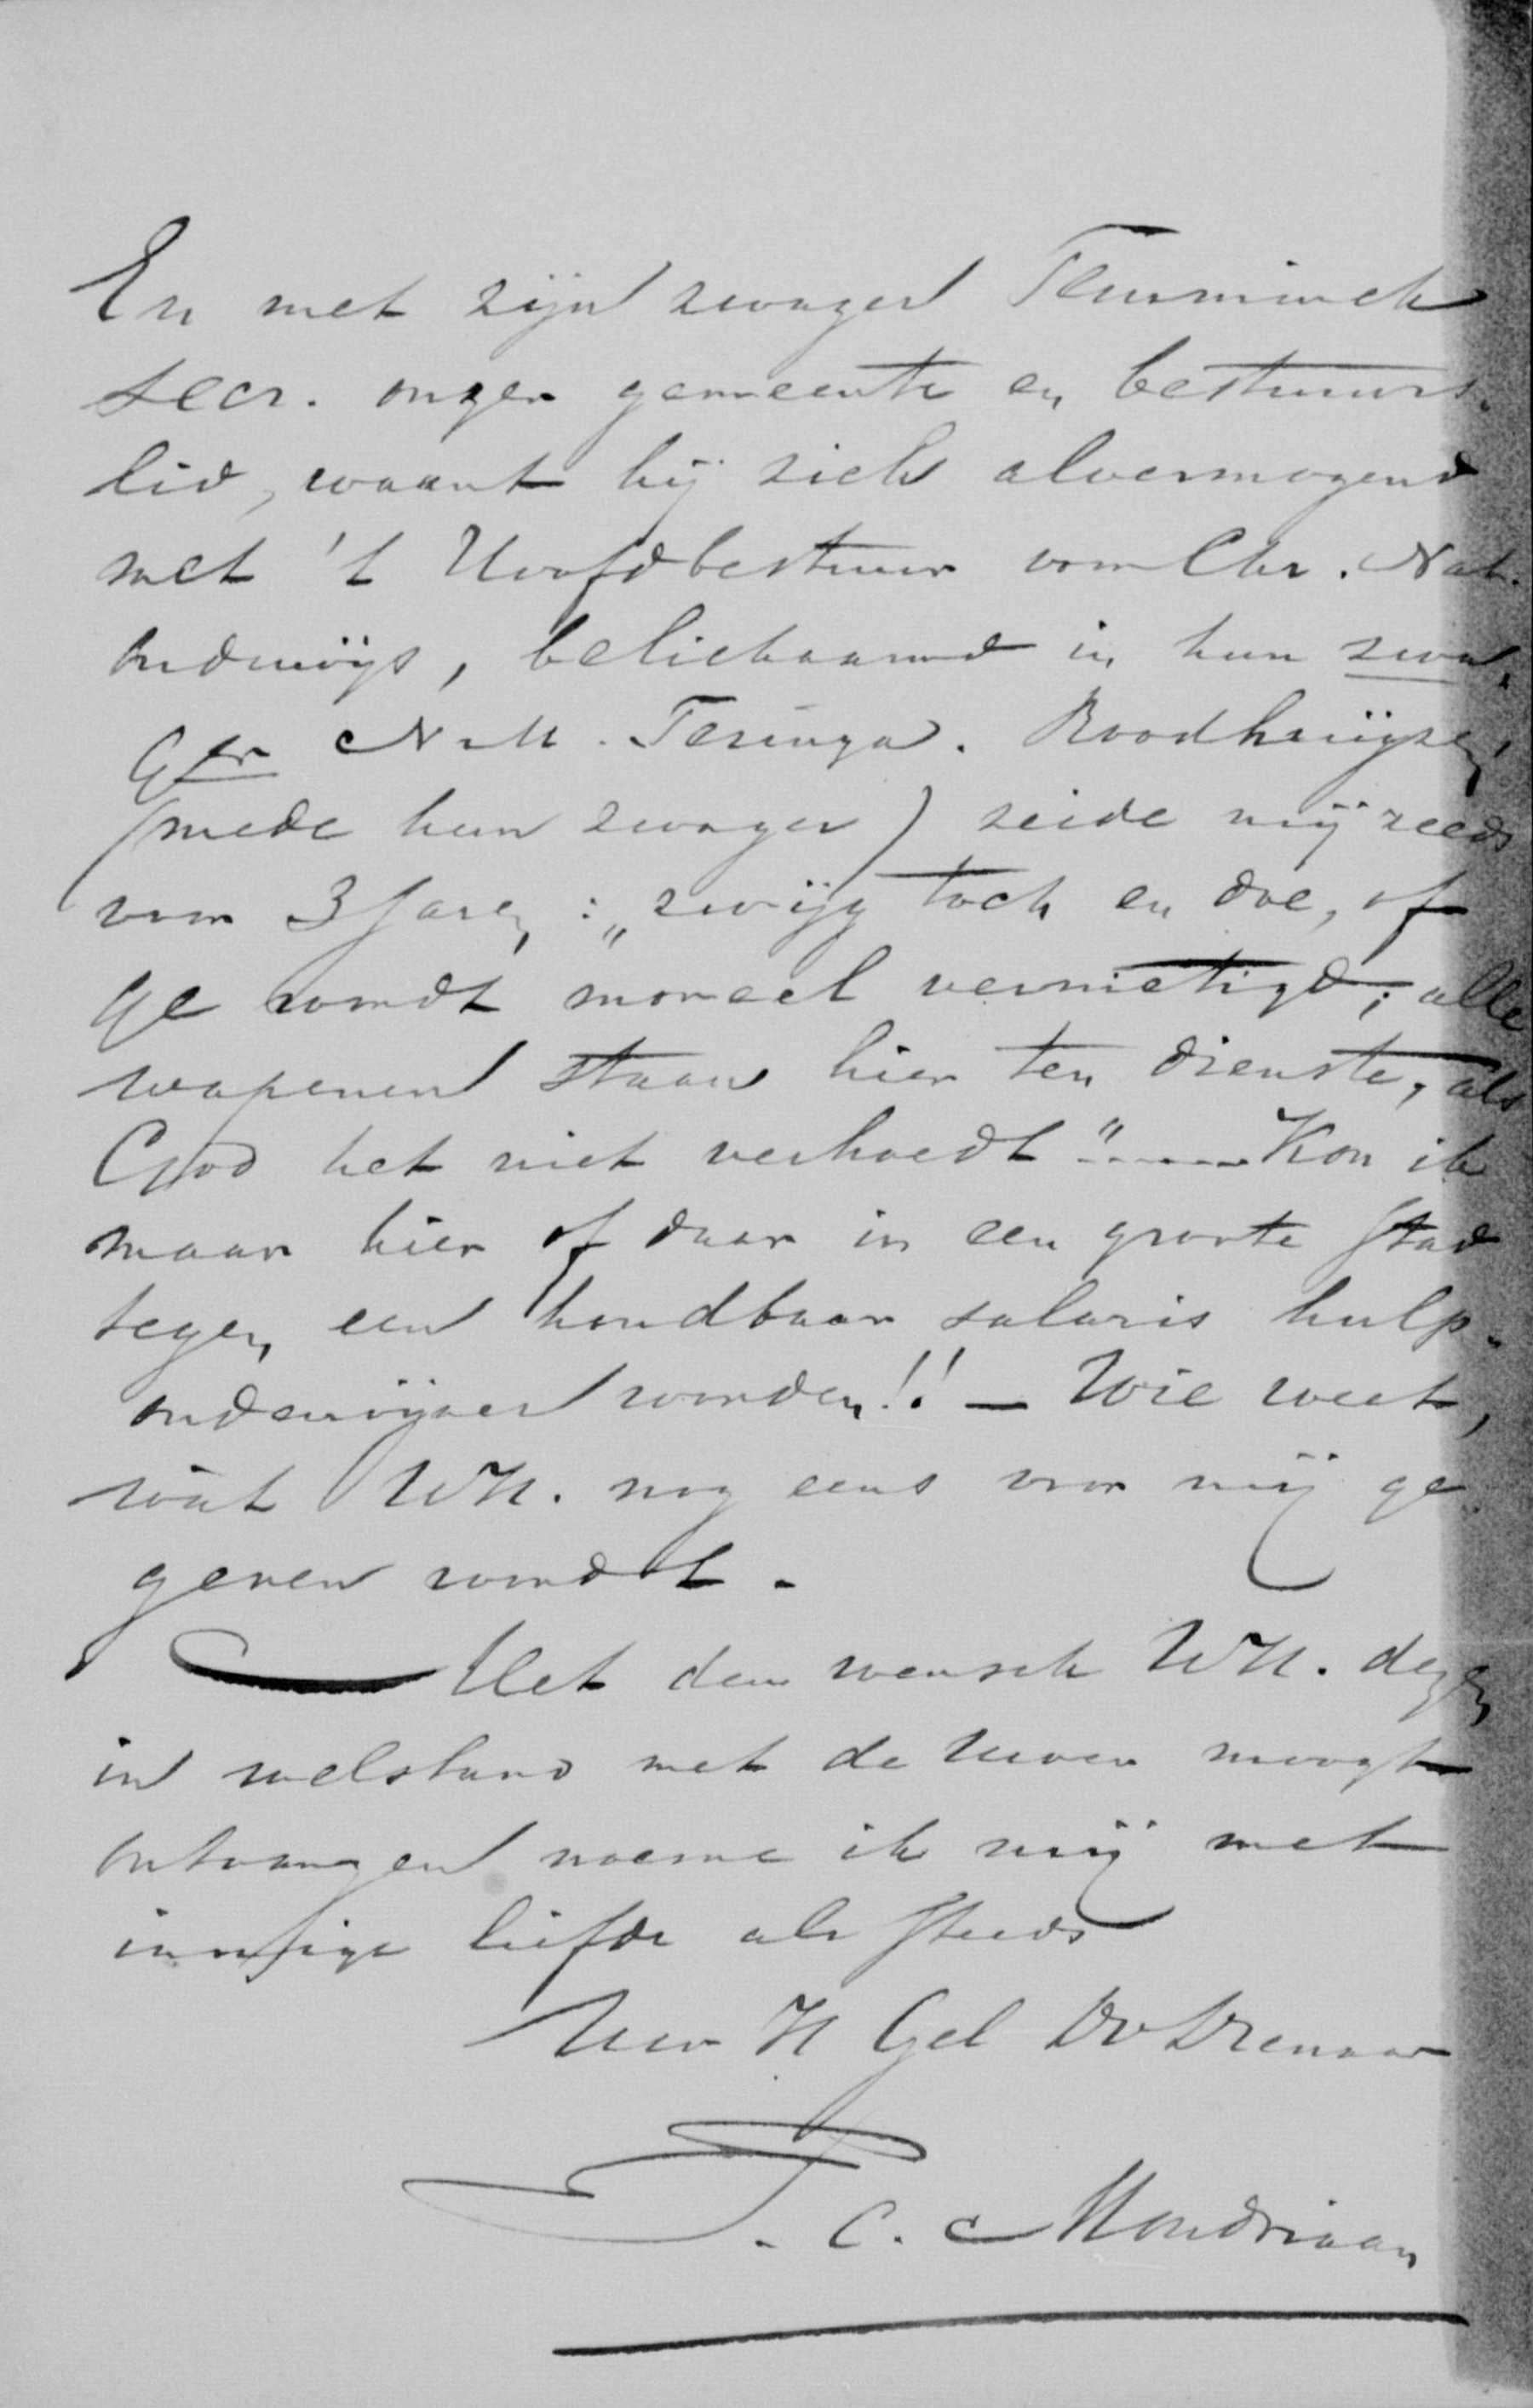 En met zijn zwager Temminck
secr. onzer gemeente en bestuurs-
lid, waant hij zich alvermogend
met 't Hoofdbestuur voor Chr. Nat.
onderwijs, belichaamd in hun zwa-
ger M. Teringa. Roodhuijzen,
(mede hun zwager) zeide mij reeds
voor 3 jaren: „zwijg toch en doe, of
ge wordt moreel vernietigd; alle
wapenen staan hier ten dienste, als
God het niet verhoedt" ---- Kon ik
maar hier of daar in een groote stad
tegen een houdbaar salaris hulp-
onderwijzer worden!! – Wie weet,
wat UH. nog eens voor mij ge-
geven wordt.
Met den wensch UH. dezen
in welstand met de Uwen moogt
ontvangen noeme ik mij met
innige liefde als steeds
Uw H Gel Dv Dienaar
P. C. Mondriaan